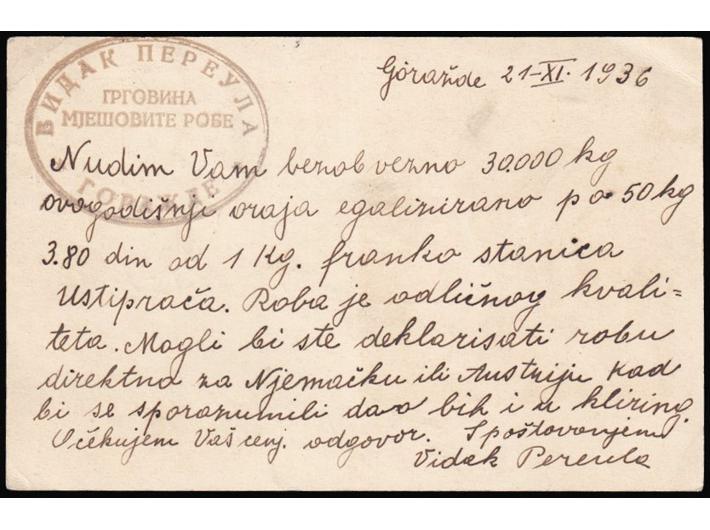 ВИДАК ПЕРЕУЛА
ТРГОВИНА
МЈЕШОВИТЕ РОБЕ
ГОРАЖДЕ
Goražde 21-XI. 1936
Nudim Vam bezobvezno 30.000 kg
ovogodišnji oraja egalizirano po 50 kg
3.80 din od 1 Kg. franko stanica
Ustiprača. Roba je odličnog kvali=
teta. Mogli bi ste deklarisati robu
direktno za Njemačku ili Austriju kad
bi se sporazumili dao bih i u kliring.
Očekujem Vaš cenj. odgovor. S poštovanjem
Vidak Pereula